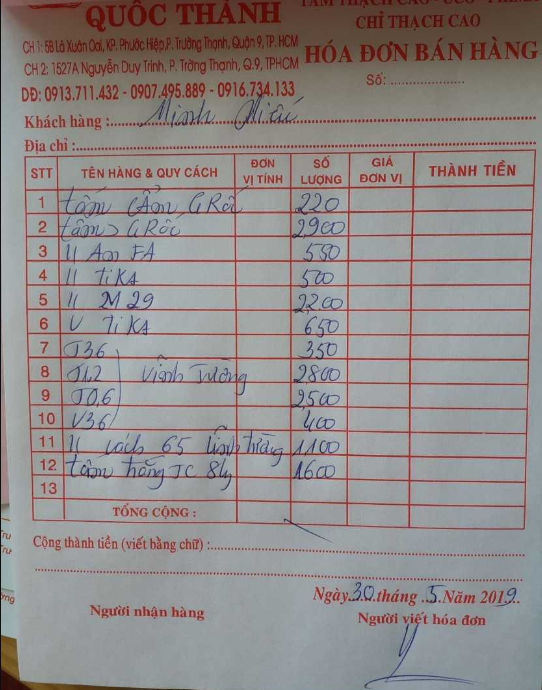 QUỐC THÀNH
TẤM THẠCH CAO
CHỈ THẠCH CAO
CH 1: 5B Lã Xuân Oai, KP. Phước Hiệp, P. Trường Thạnh, Quận 9, TP. HCM
CH 2: 1527A Nguyễn Duy Trinh, P. Trờng Thạnh, Q.9, TPHCM
HÓA ĐƠN BÁN HÀNG
DĐ: 0913.711.432 - 0907.495.889 - 0916.734.133
Số: ....................
Khách hàng : Minh Hiếu
Địa chỉ :
STT TÊN HÀNG & QUY CÁCH ĐƠN VỊ TÍNH SỐ LƯỢNG GIÁ ĐƠN VỊ THÀNH TIỀN
1 tấm 220
2 tấm 2900
3 11 550
4 11 tiKA 500
5 11 M 29 2200
6 V tiKA 650
7 T36 350
8 T1,2 Vĩnh Tường 2800
9 T0,6 2500
10 V36 400
11 11 vách 65 1100
12 tấm trắng TC 8ly 1600
13
TỔNG CỘNG :
Cộng thành tiền (viết bằng chữ) :
Ngày 30 tháng 5 Năm 2019
Người nhận hàng Người viết hóa đơn